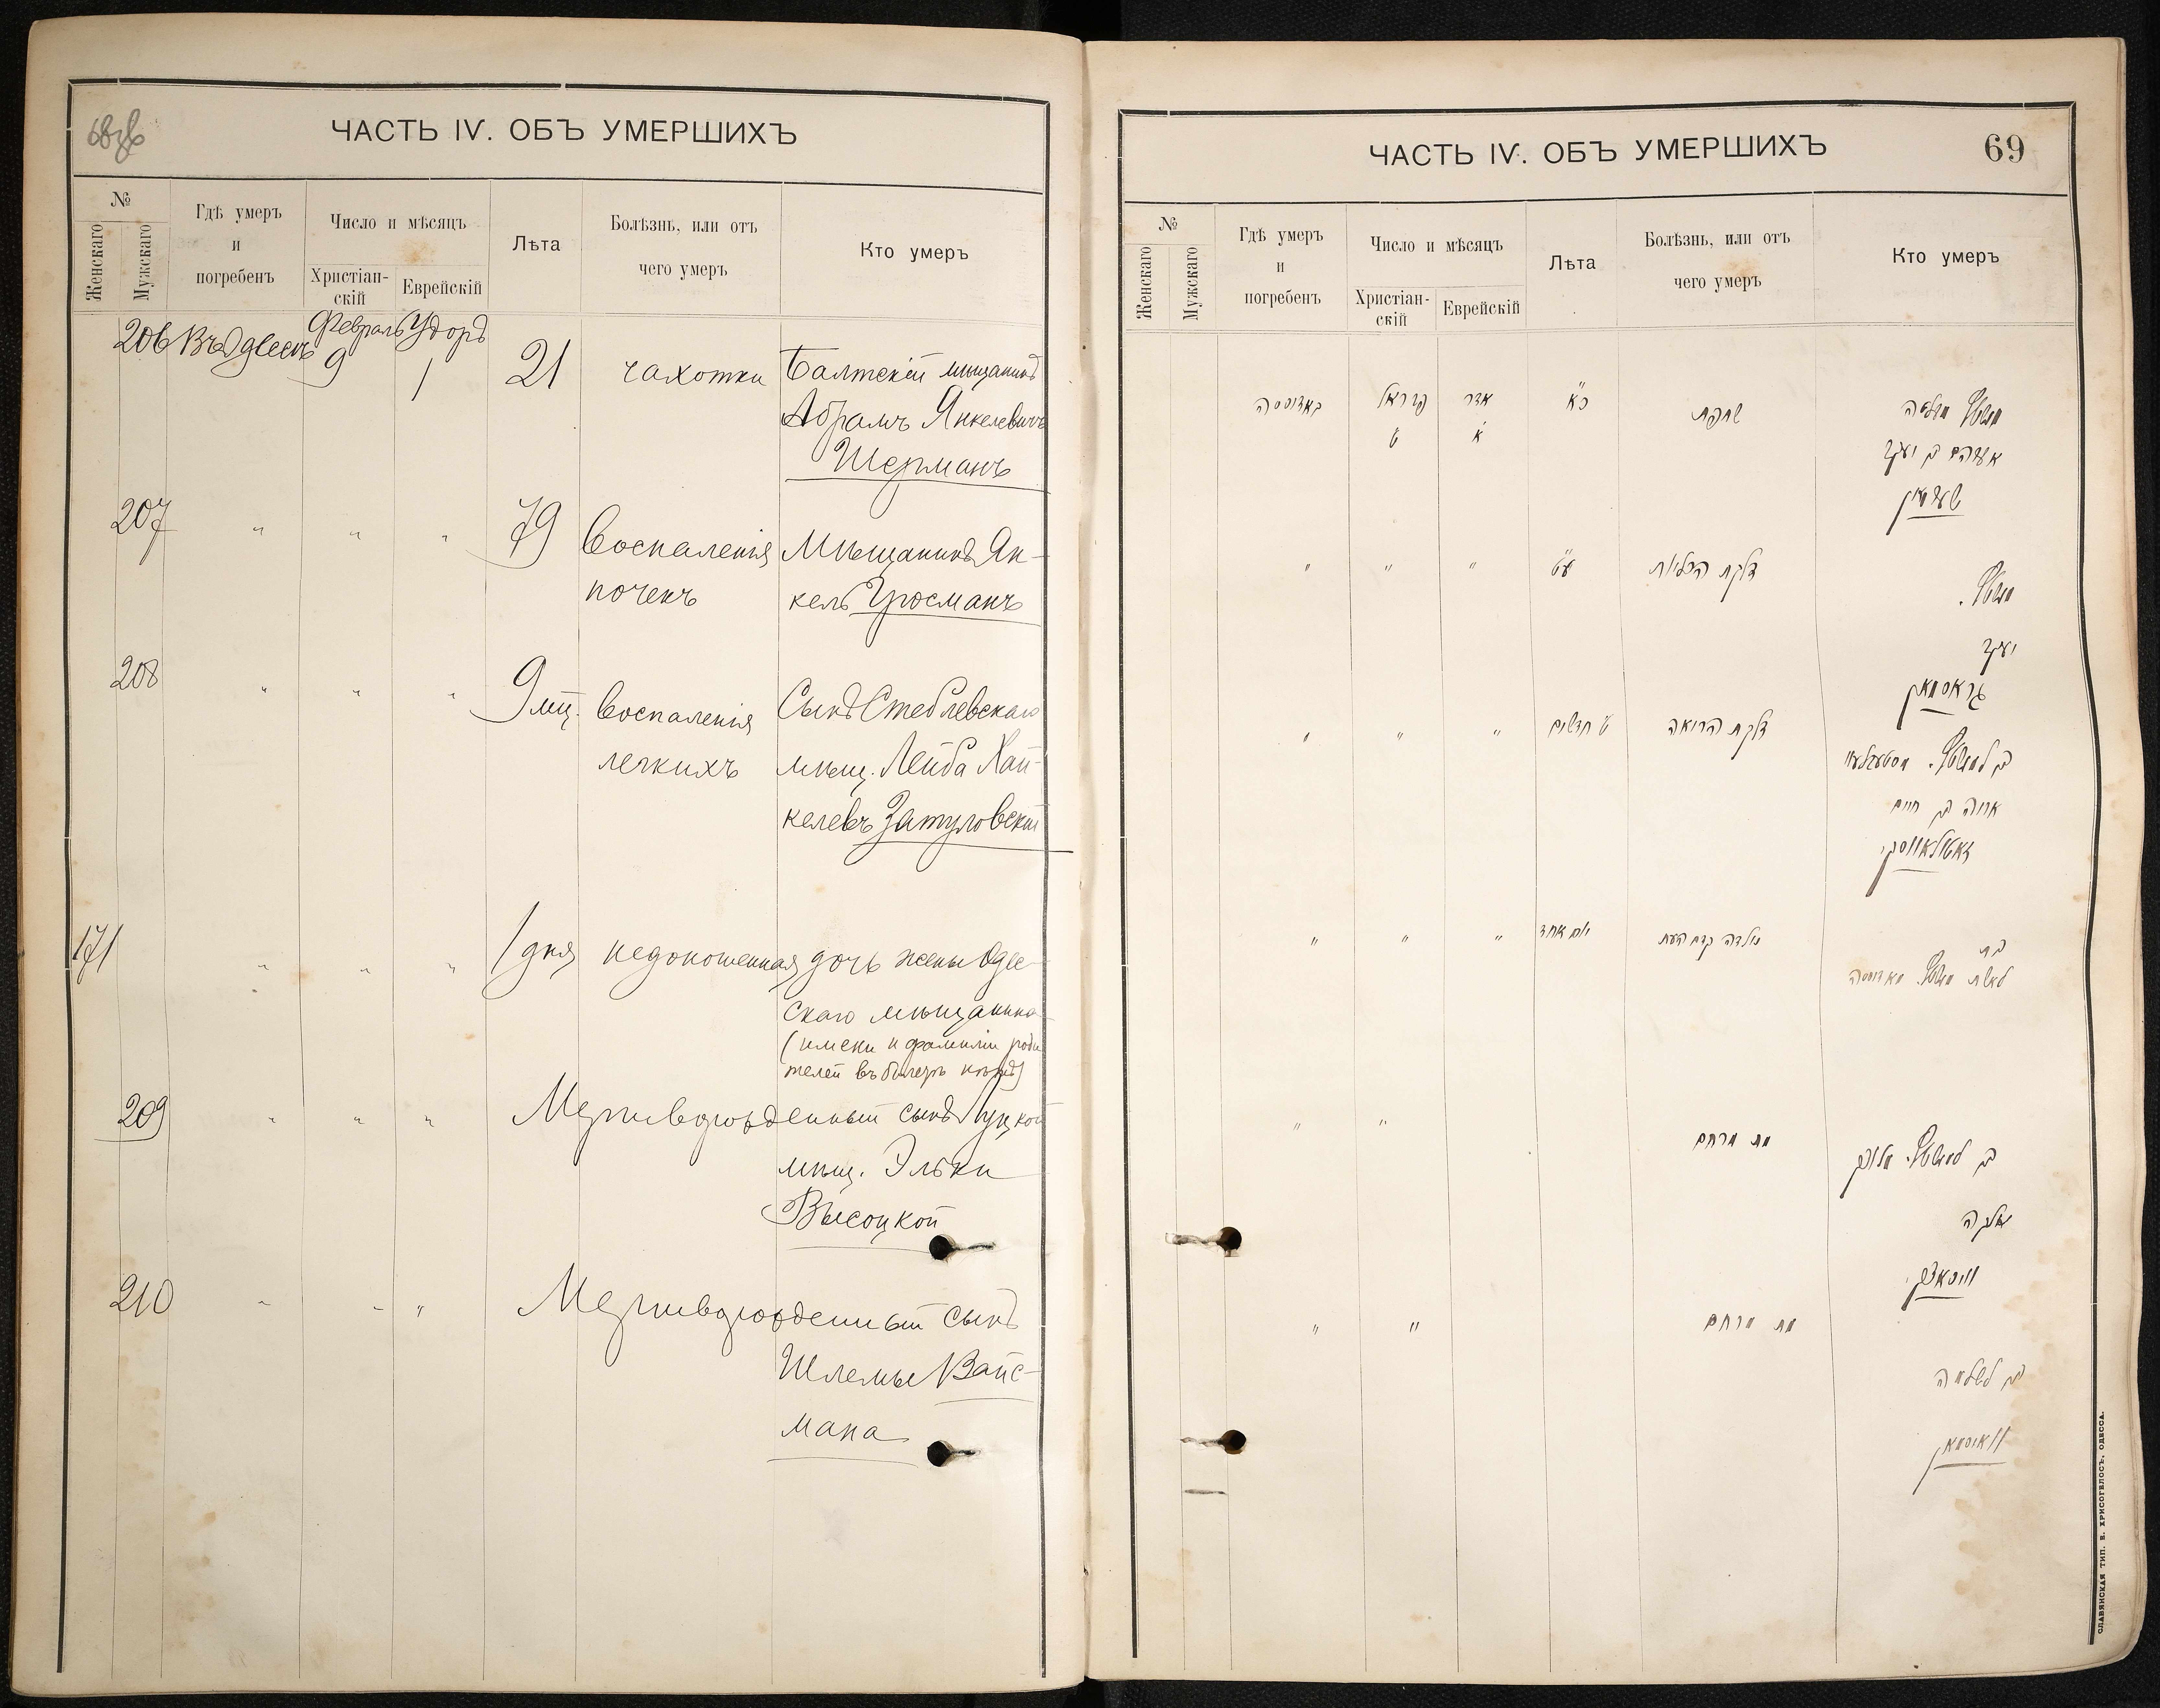 ЧАСТЬ IV. ОБЪ УМЕРШИХЪ
№
Женскаго
Мужскаго
Гдѣ умеръ
и
погребенъ
Число и мѣсяцъ
Христіан-
скій
Еврейскій
Лѣта
Болѣзнь, или отъ
чего умеръ
Кто умеръ
206 Въ Одессѣ Февраль 9 Адоръ 1 21 чахотки Балтскій мѣщанинъ
Абрамъ Янкелевичъ
Шерманъ
207 " " " 79 Воспаленія Мѣщанинъ Ян-
почекъ кель Гросманъ
208 " " " 9 мц. Воспаленія Сынъ Стеблевскаго
легкихъ мѣщ. Лейба Хай-
келевъ Затуловскій
171 " " " 1 дня недоношенная дочь жены Одес-
скаго мѣщанина
(имени и фамиліи роди
телей въ билетѣ нѣтъ)
209 " " " Мертворожденный сынъ Луцкой
мѣщ. Эльки
Высоцкой
210 " " " Мертворожденный сынъ
Шлемы Вайс-
мана
ЧАСТЬ IV. ОБЪ УМЕРШИХЪ
69
№
Женскаго
Мужскаго
Гдѣ умеръ
и
погребенъ
Число и мѣсяцъ
Христіан-
скій
Еврейскій
Лѣта
Болѣзнь, или отъ
чего умеръ
Кто умеръ
באדוססה פברואל אדר כא שחפת
ט א
אברהם בן יעקב
שערמאן
" " " עט דלקת הכליות
יעקב
גראסמאן
" " " ט חדשים דלקת הריאה
אריה בן חיים
זאטולאווסקי
" " " יום אחד נולדה קדם העת בת
" " מת מרחם
עלקה
וויסאצקי
" " מת מרחם
בן לשלמה
ווייסמאן
СЛАВЯНСКАЯ ТИП. Е. ХРИСОГЕЛОСЪ, ОДЕССА.